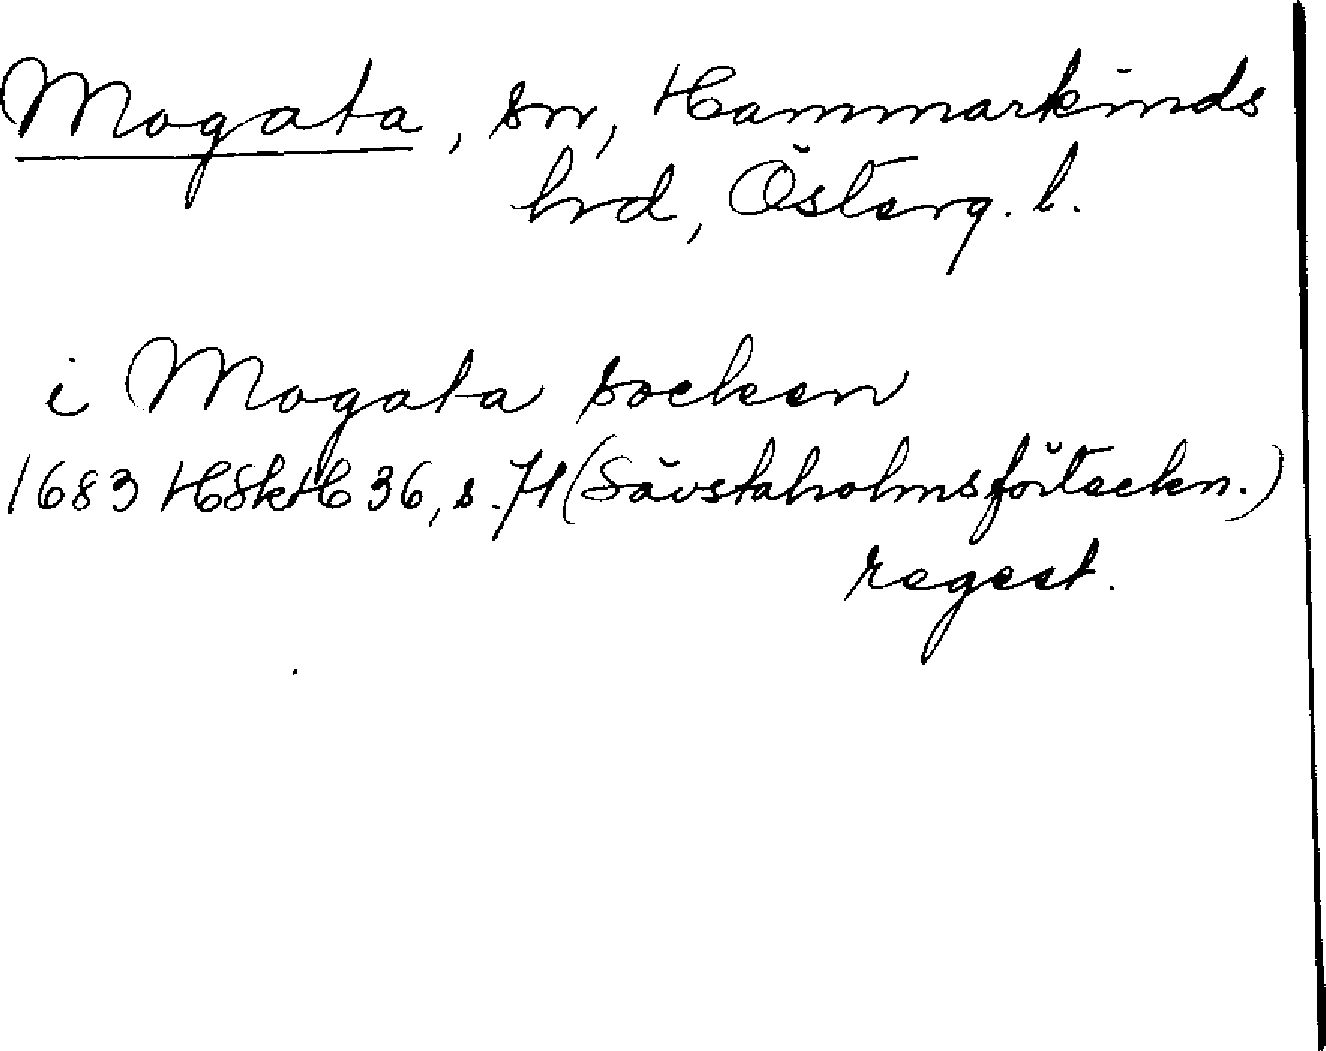 Mogata, sn, Hammarkinds
hrd, Österg. l.
i Mogata socken
1683 HSkH 36, s. 71 (Sävstaholmsförteckn.)
regest.